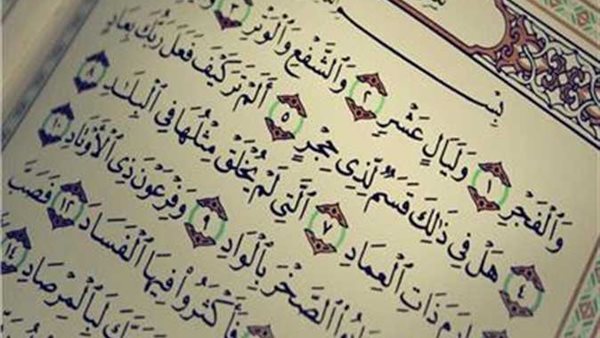 بِسْ
وَٱلْفَجْرِ ١ وَلَيَالٍ عَشْرٍ ٢ وَٱلشَّفْعِ وَٱلْوَتْرِ ٣
٤ هَلْ فِي ذَٰلِكَ قَسَمٌ لِّذِي حِجْرٍ ٥ أَلَمْ تَرَ كَيْفَ فَعَلَ رَبُّكَ بِعَادٍ
ذَاتِ ٱلْعِمَادِ ٧ ٱلَّتِي لَمْ يُخْلَقْ مِثْلُهَا فِي ٱلْبِلَٰدِ ٨
ٱلصَّخْرَ بِٱلْوَادِ ٩ وَفِرْعَوْنَ ذِي ٱلْأَوْتَادِ ١٠
فَأَكْثَرُوا۟ فِيهَا ٱلْفَسَادَ ١٢ فَصَبَّ
لَبِٱلْمِرْصَادِ ١٤